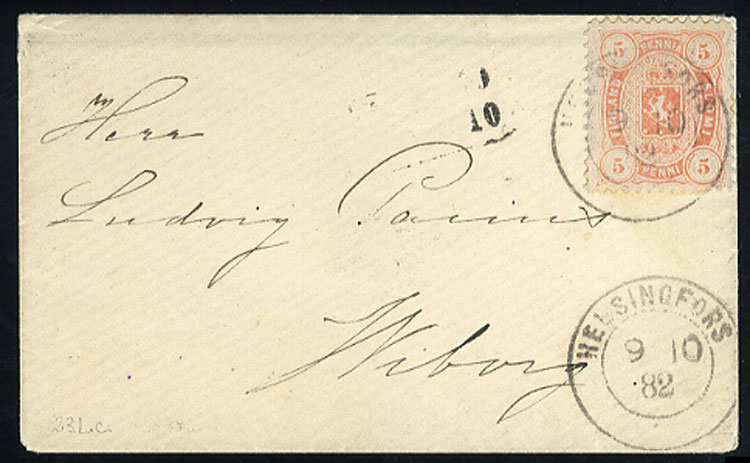 5 PENNIÄ 5
FINLAND SUOMI
5 PENNI 5
10
Herr
Ludvig
Wiborg
HELSINGFORS
9 10
82